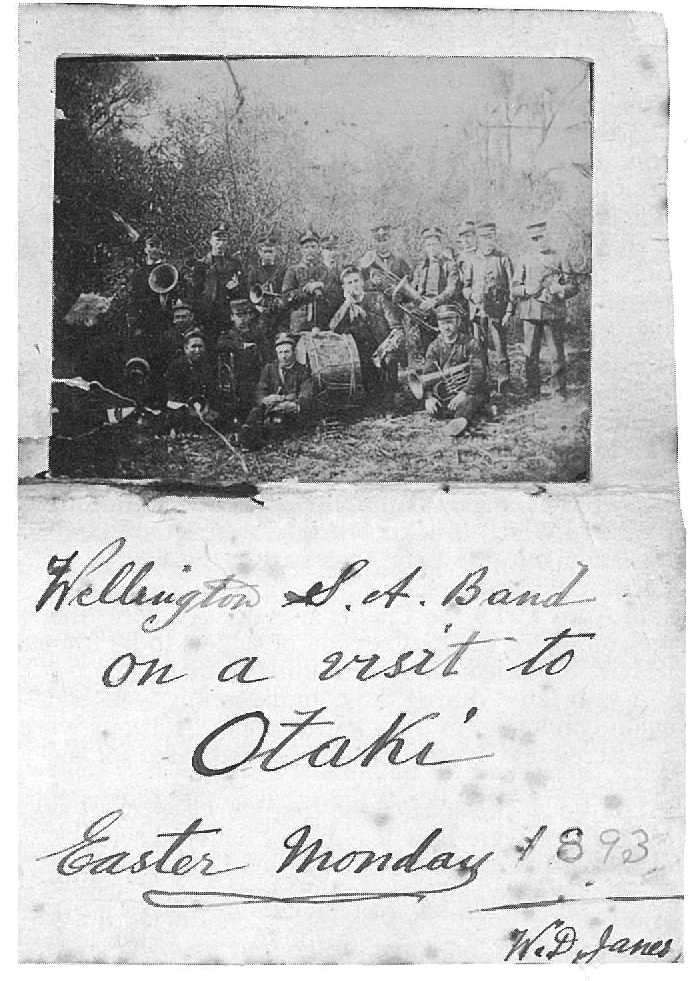 Wellington S. A. Band
on a visit to
Otaki
Easter Monday 1893
W. D. Janes,